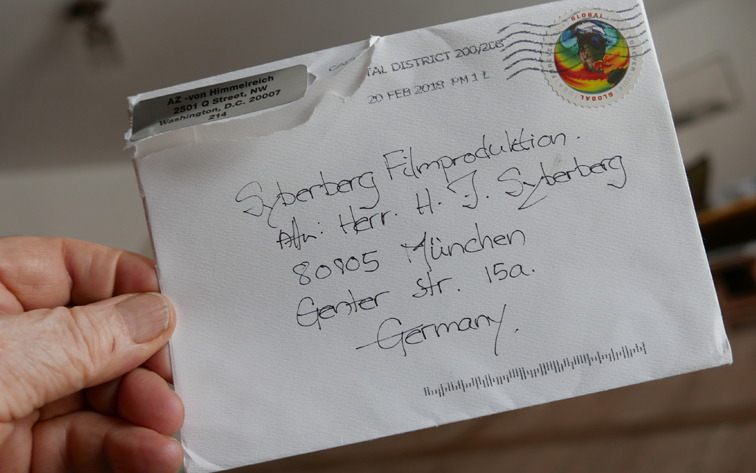 AZ -von Himmelreich
2501 Q Street, NW
Washington, D.C. 20007
214
CAPITAL DISTRICT 200/208
20 FEB 2018 PM 1 L
GLOBAL
GLOBAL
Syberberg Filmproduktion.
Attn: Herr. H. J. Syberberg
80805 München
Genter Str. 15a.
Germany.